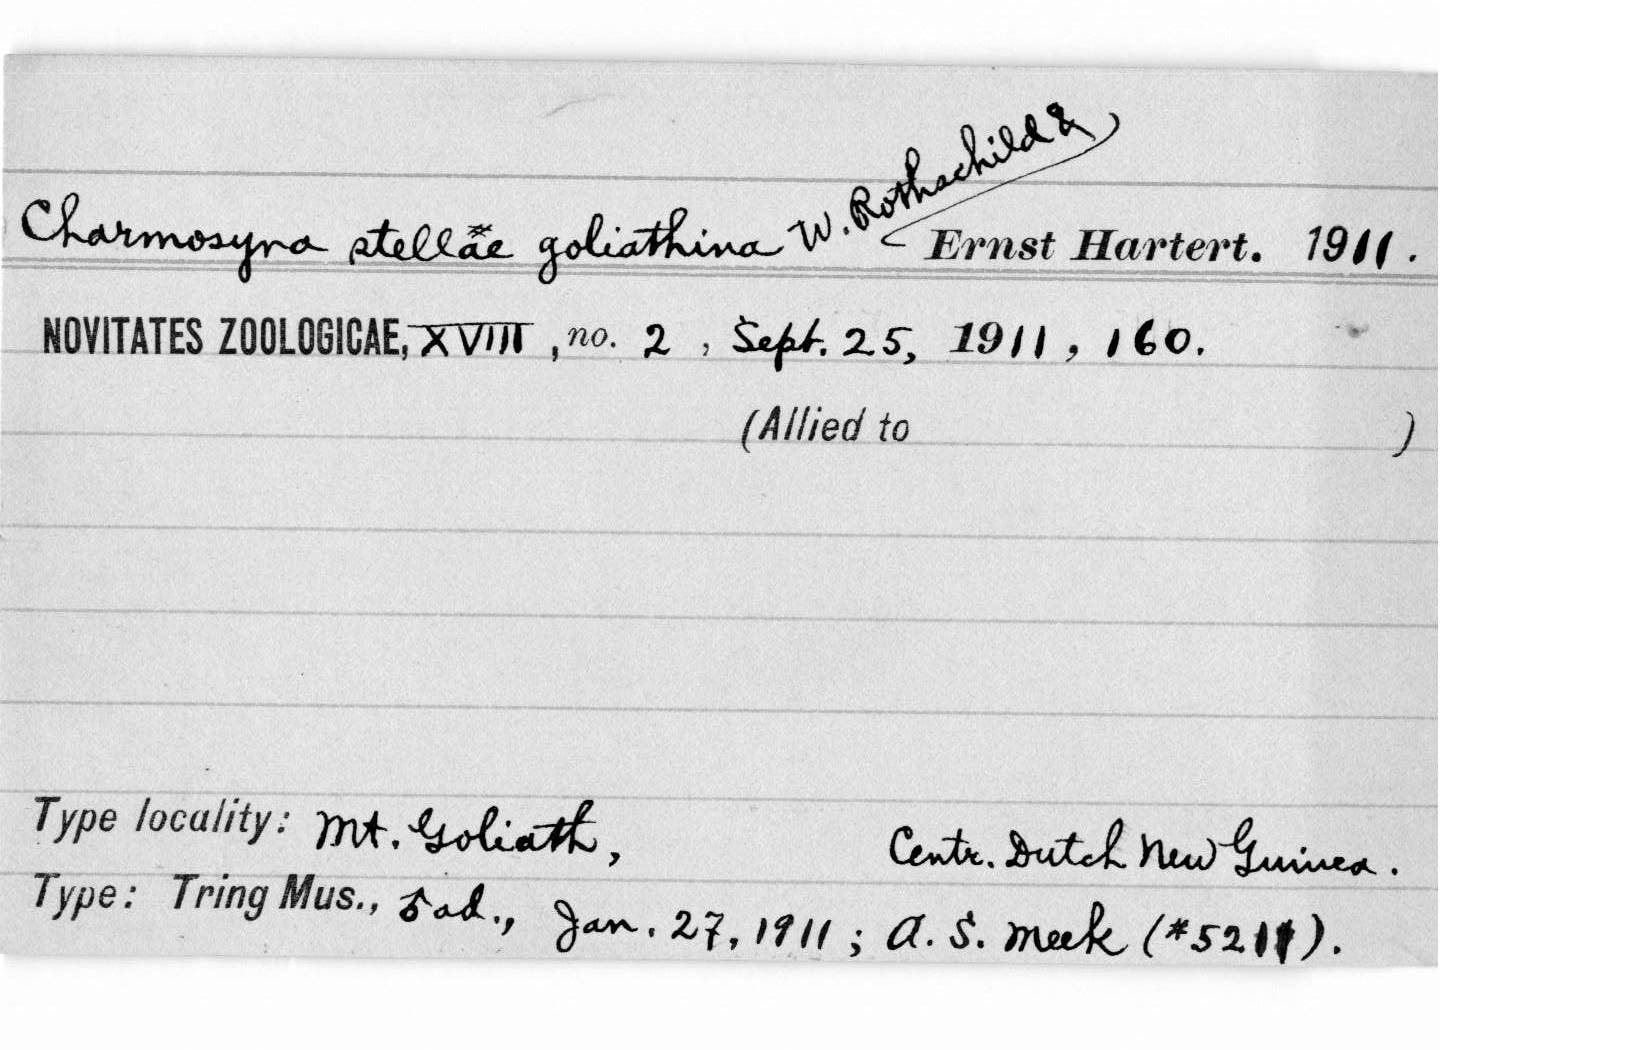 Charmosyna stellae goliathina W. Rothschild & Ernst Hartert. 1911.
NOVITATES ZOOLOGICAE, XVIII, no. 2, Sept. 25, 1911, 160.
(Allied to )
Type locality: Mt. Goliath, Centr. Dutch New Guinea.
Type: Tring Mus., ♂ ad., Jan. 27, 1911; A. S. Meek (*5211).